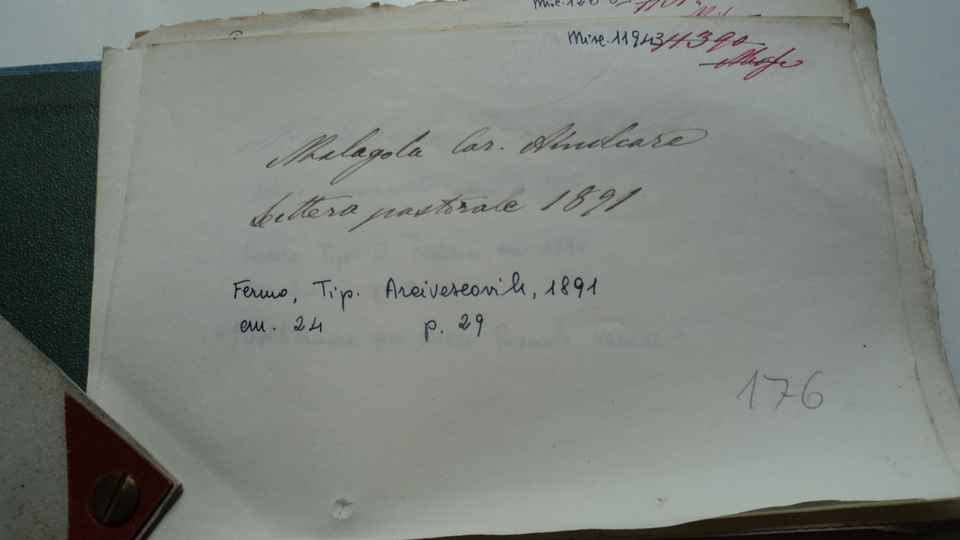 Misc. 11943
Malagola Car. Amilcare
Lettera pastorale 1891
Fermo, Tip. Arcivescovile, 1891
cm. 24 p. 29
176